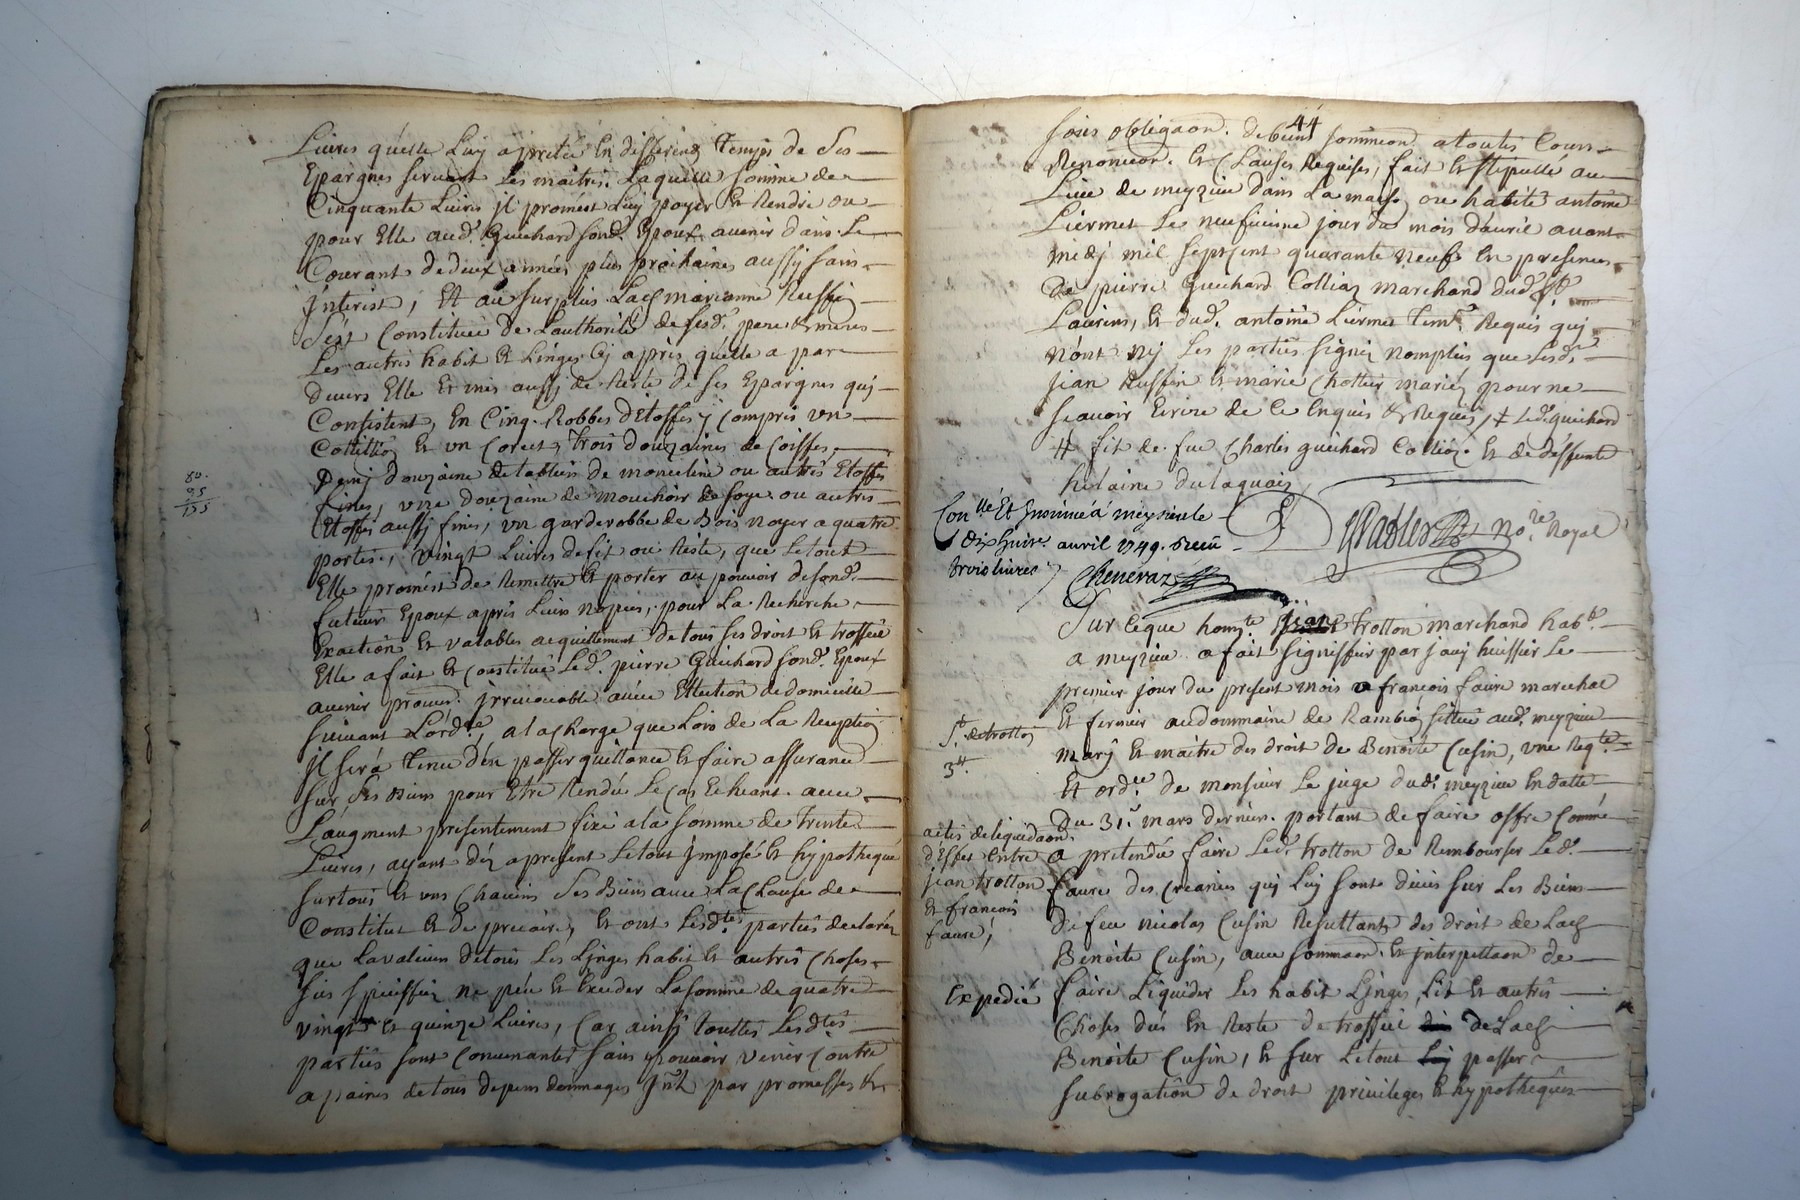 Livres quelle Luy a pretée En differend temps de Ses
Epargnes servant Les maitres. Laquelle somme de
Cinquante Livres jl promest Luy payer Et Rendre ou
pour Elle aud. Guichard sond. Epoux avenir dans Le
Courant de deux années plus prochaines aussy sans
jnterest, Et au surplus Lad marianne Ruffin
S'est Constituée de Lauthorité de sesd. pere & meres
Les autres habit Et Linges Cy apres quelle a par
devers Elle Et mis aussy de Reste de Ses Epargnes quj
Consistent, En Cinq Robbes d'Etoffes y compris un
Cotillio Et un Corcet, trois douzaines de Coiffes,
Demj douzaine de tabliers de mouceline ou autres Etoffes
fines, une Douzaine de mouchoir de soye ou autres
Etoffes aussy fines, un garderobbe de Bois noyer a quatre
portes, vingt Livres de fit ou Riste, que Letout
Elle promest de Remettre Et porter au pouvoir desond.
futeur Epoux apres Leurs nopces, pour La Recherche
Exaction Et valables acquittement de tous ses droit Et trosseil
Elle a fait Et Constitué Led. pierre Guichard sond. Epoux
avenir procur. jrrevocable avec Ellection de domicille
suivant Lord.ce, ala charge que Lors de La Reception
jl sera tenue d'en passer quittance Et faire assurance
sur ses Biens pour Etre Rendue Le Cas Echeant avec
L'augment presentement fixé ala somme de trente
Livres, ayant dez apresent Letout jmposé Et hypothequé
surtous Et uns Chacuns Ses Biens avec La Clause de
Constitut Et de precaire, Et ont Lesd.tes parties declarez
que Lavaleur detous Les Linges habit Et autres Choses
sus speciffiez ne peut Exceder La somme de quatre
vingt Et quinze Livres, Car ainsy Touttes Lesd.tes
parties sont Convenantes sans pouvoir venir Contre
a paines detous depens dommages jnt. par promesses &
80.
95
155
44
sous obligaon. de biens sommeon. a toutes Cours
Renoncion. Et Clauses Requises, fait Et stipullé au
Lieu de meyzieu dans La maison ou habite antoine
Liermet Le neufvieme jour du mois d'avril avant
midj mil septcent quarante neuf En presences
De pierre Guichard Collia marchand dud. St.
Laurens, Et dud. antoine Liermet temt. Requis quj
n'ont nj Les parties signez nomplus que Lesd.
jean Ruffin Et marie Chollier mariez pour ne
scavoir Ecrire de Ce Enquis & Requis, # Led. guichard
# fit de feu Charles guichard Collia Et de deffunte
helaine dulaquais
Con.llé Et Insinué a meysieu le
dix huit. avril 1749. Recu
trois livres
Cheneraz
No.re Royal
Sur Ceque hom.te jean trollon marchand hab.t
a meyzieu a fait signiffier par jouy huissier Le
premier jour du present mois a francois faure marechal
Et fermier audommaine de Rambio sittué aud. meyzieu
mary Et maitre des droit de Benoite Cusin, une Req.te
Et ord.ce de monsieur Le juge dud. meyzieu En datte
Du 31. mars dernier. portant de faire offre Comme
a pretendu faire Led. trollon de Rembourser Led.
faure des Creances quj Luy sont deües sur Les Biens
de feu nicolas Cusin Resultants des droit de Lad
Benoite Cusin, avec sommaon. Et jnterpellaon de
faire Liquider Les habit Linges Lit Et autres
Choses dus En Reste de trosseil de Lad
Benoite Cusin, Et sur Letout passer
subrogation de droit privileges Et hypotheques
St. de trollon
3tt.
actes deliquidaon
d'Effets Entre
jean trollon
Et francois
faure,
Expedié